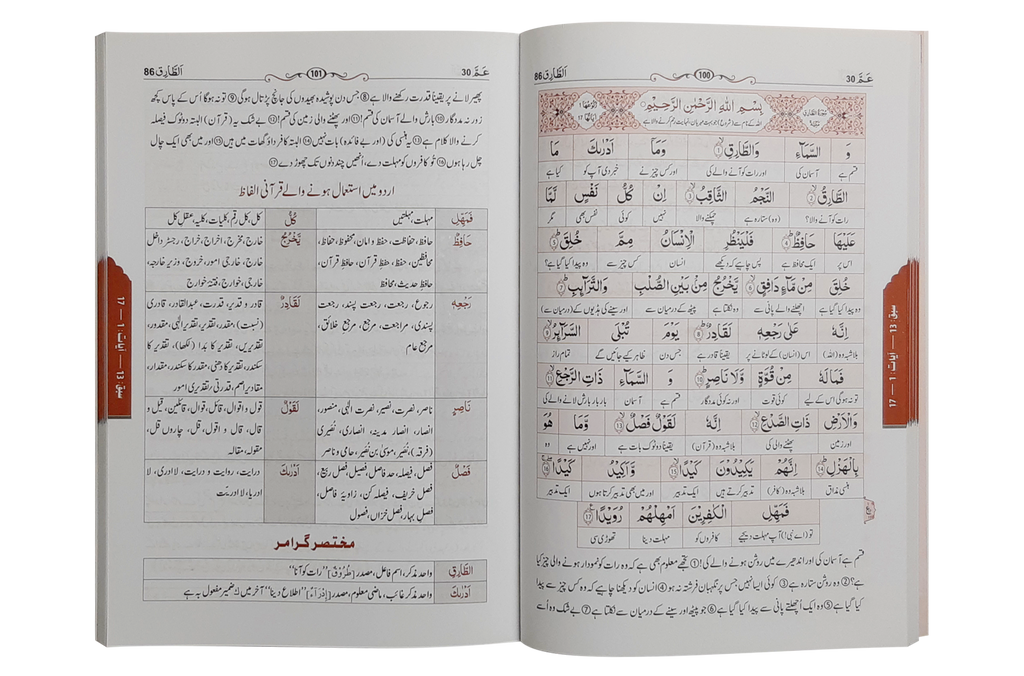 عَمَّ 30
100
اَلطَّارِق 86
بِسْمِ اللهِ الرَّحْمٰنِ الرَّحِيْمِ
وَ السَّمَآءِ وَالطَّارِقِ ۙ﴿1﴾ وَمَآ اَدْرٰىكَ مَا
قسم ہے آسمان کی اور رات کو آنے والے کی اور کس چیز نے خبر دی آپ کو کیا ہے
الطَّارِقُ ۙ﴿2﴾ النَّجْمُ الثَّاقِبُ ۙ﴿3﴾ اِنْ كُلُّ نَفْسٍ لَّمَّا
رات کو آنے والا؟ (وہ) ستارہ ہے چمکنے والا نہیں کوئی نفس بھی مگر
عَلَيْهَا حَافِظٌ ؕ﴿4﴾ فَلْيَنْظُرِ الْاِنْسَانُ مِمَّ خُلِقَ ؕ﴿5﴾
اس پر ایک محافظ ہے پس چاہیے کہ دیکھے انسان کس چیز سے وہ پیدا کیا گیا ہے؟
خُلِقَ مِنْ مَّآءٍ دَافِقٍ ۙ﴿6﴾ يَّخْرُجُ مِنْۢ بَيْنِ الصُّلْبِ وَالتَّرَآئِبِ ؕ﴿7﴾
وہ پیدا کیا گیا ہے اچھلنے والے پانی سے وہ نکلتا ہے پیٹھ کے درمیان سے اور سینے کی ہڈیوں کے (درمیان سے)
اِنَّهٗ عَلٰى رَجْعِهٖ لَقَادِرٌ ؕ﴿8﴾ يَوْمَ تُبْلَى السَّرَآئِرُ ۙ﴿9﴾
بلاشبہ وہ (اللہ) اس (انسان) کے لوٹانے پر یقیناً قادر ہے جس دن ظاہر کیے جائیں گے تمام راز
فَمَا لَهٗ مِنْ قُوَّةٍ وَّلَا نَاصِرٍ ؕ﴿10﴾ وَ السَّمَآءِ ذَاتِ الرَّجْعِ ۙ﴿11﴾
تو نہ ہوگی اس کے لیے کوئی قوت اور نہ کوئی مددگار قسم ہے آسمان بار بار بارش لانے والے کی
وَالْاَرْضِ ذَاتِ الصَّدْعِ ۙ﴿12﴾ اِنَّهٗ لَقَوْلٌ فَصْلٌ ۙ﴿13﴾ وَّمَا هُوَ
اور زمین پھٹنے والی کی بلاشبہ وہ (قرآن) یقیناً دو ٹوک بات ہے اور نہیں ہے وہ
بِالْهَزْلِ ؕ﴿14﴾ اِنَّهُمْ يَكِيْدُوْنَ كَيْدًا ۙ﴿15﴾ وَّاَكِيْدُ كَيْدًا ۚۖ﴿16﴾
ہنسی مذاق بلاشبہ وہ (کافر) تدبیر کرتے ہیں ایک تدبیر اور میں بھی تدبیر کرتا ہوں ایک تدبیر
فَمَهِّلِ الْكٰفِرِيْنَ اَمْهِلْهُمْ رُوَيْدًا ﴿17﴾
تو (اے نبی!) آپ مہلت دیجیے کافروں کو مہلت دینا تھوڑی سی
قسم ہے آسمان کی اور اندھیرے میں روشن ہونے والے کی! ① تجھے معلوم بھی ہے کہ وہ رات کو نمودار ہونے والی چیز کیا
ہے؟ ② وہ روشن ستارہ ہے ③ کوئی ایسا نہیں جس پر نگہبان فرشتہ نہ ہو ④ انسان کو دیکھنا چاہیے کہ وہ کس چیز سے پیدا
کیا گیا ہے ⑤ وہ ایک اُچھلتے پانی سے پیدا کیا گیا ہے ⑥ جو پیٹھ اور سینے کے درمیان سے نکلتا ہے ⑦ بے شک وہ اُسے
سبق: 13 — آیات: 1 — 17
عَمَّ 30
101
اَلطَّارِق 86
پھیر لانے پر یقیناً قدرت رکھنے والا ہے ⑧ جس دن پوشیدہ بھیدوں کی جانچ پڑتال ہوگی ⑨ تو نہ ہوگا اُس کے پاس کچھ
زور نہ مددگار ⑩ بارش والے آسمان کی قسم! ⑪ اور پھٹنے والی زمین کی قسم! ⑫ بے شک یہ (قرآن) البتہ دو ٹوک فیصلہ
کرنے والا کلام ہے ⑬ یہ ہنسی کی (اور بے فائدہ) بات نہیں ⑭ البتہ کافر داؤ گھات میں ہیں ⑮ اور میں بھی ایک چال
چل رہا ہوں ⑯ تُو کافروں کو مہلت دے، اُنھیں چند دنوں تک چھوڑ دے ⑰
اردو میں استعمال ہونے والے قرآنی الفاظ
فَمَهِّلِ مہلت، مہلتیں كُلُّ کل، کل رقم، کلیات، کلیہ، عقلِ کل
حَافِظٌ حافظ، حفاظت، حفظ و امان، محفوظ، حفاظ، يَّخْرُجُ خارج، مخرج، اخراج، خراج، رجسٹر داخل
محافظین، حفظ، حفظِ قرآن، حافظِ قرآن، خارج، خارجی امور، خروج، وزیر خارجہ،
حافظِ حدیث، محافظ خارجی، خوارج، فتنۂ خوارج
رَجْعِهٖ رجوع، رجعت، رجعت پسند، رجعت لَقَادِرٌ قادر و قدیر، قدرت، عبدالقادر، قادری
پسندی، مراجعت، مرجع، مرجع خلائق، (نسبت)، مقدر، تقدیر، تقدیرِ الٰہی، مقدور،
مرجع عام تقدیریں، تقدیر کا بدا (لکھا)، تقدیر کا
سکندر، تقدیر کا دھنی، مقدر کا سکندر، مقدار،
مقادیر، اہم، قدرتی، تقدیری امور
نَاصِرٍ ناصر، نصرت، نصیر، نصرتِ الٰہی، منصور، لَقَوْلٌ قول و اقوال، قائل، قوال، قائلین، قیل و
انصار، انصارِ مدینہ، انصاری، نصیری قال، قال و اقول، قل، چاروں قل،
(فرقہ)، نصیر، موسیٰ بن نصیر، حامی و ناصر مقولہ، مقالہ
فَصْلٌ فصل، فیصلہ، حد فاصل، فصیل، فصل ربیع، اَدْرٰىكَ درایت، روایت و درایت، لا ادری، لا
فصل خریف، فیصلہ کن، زاویۂ فاصل، ادریا، لا ادریّت
فصلِ بہار، فصلِ خزاں، فصول
مختصر گرامر
الطَّارِقِ واحد مذکر، اسم فاعل، مصدر [طُرُوْق] ”رات کو آنا“
اَدْرٰىكَ واحد مذکر غائب، ماضی معلوم، مصدر [اِدْرَاءٌ] ”اطلاع دینا“ آخر میں ك ضمیر مفعول بہ ہے
سبق: 13 — آیات: 1 — 17